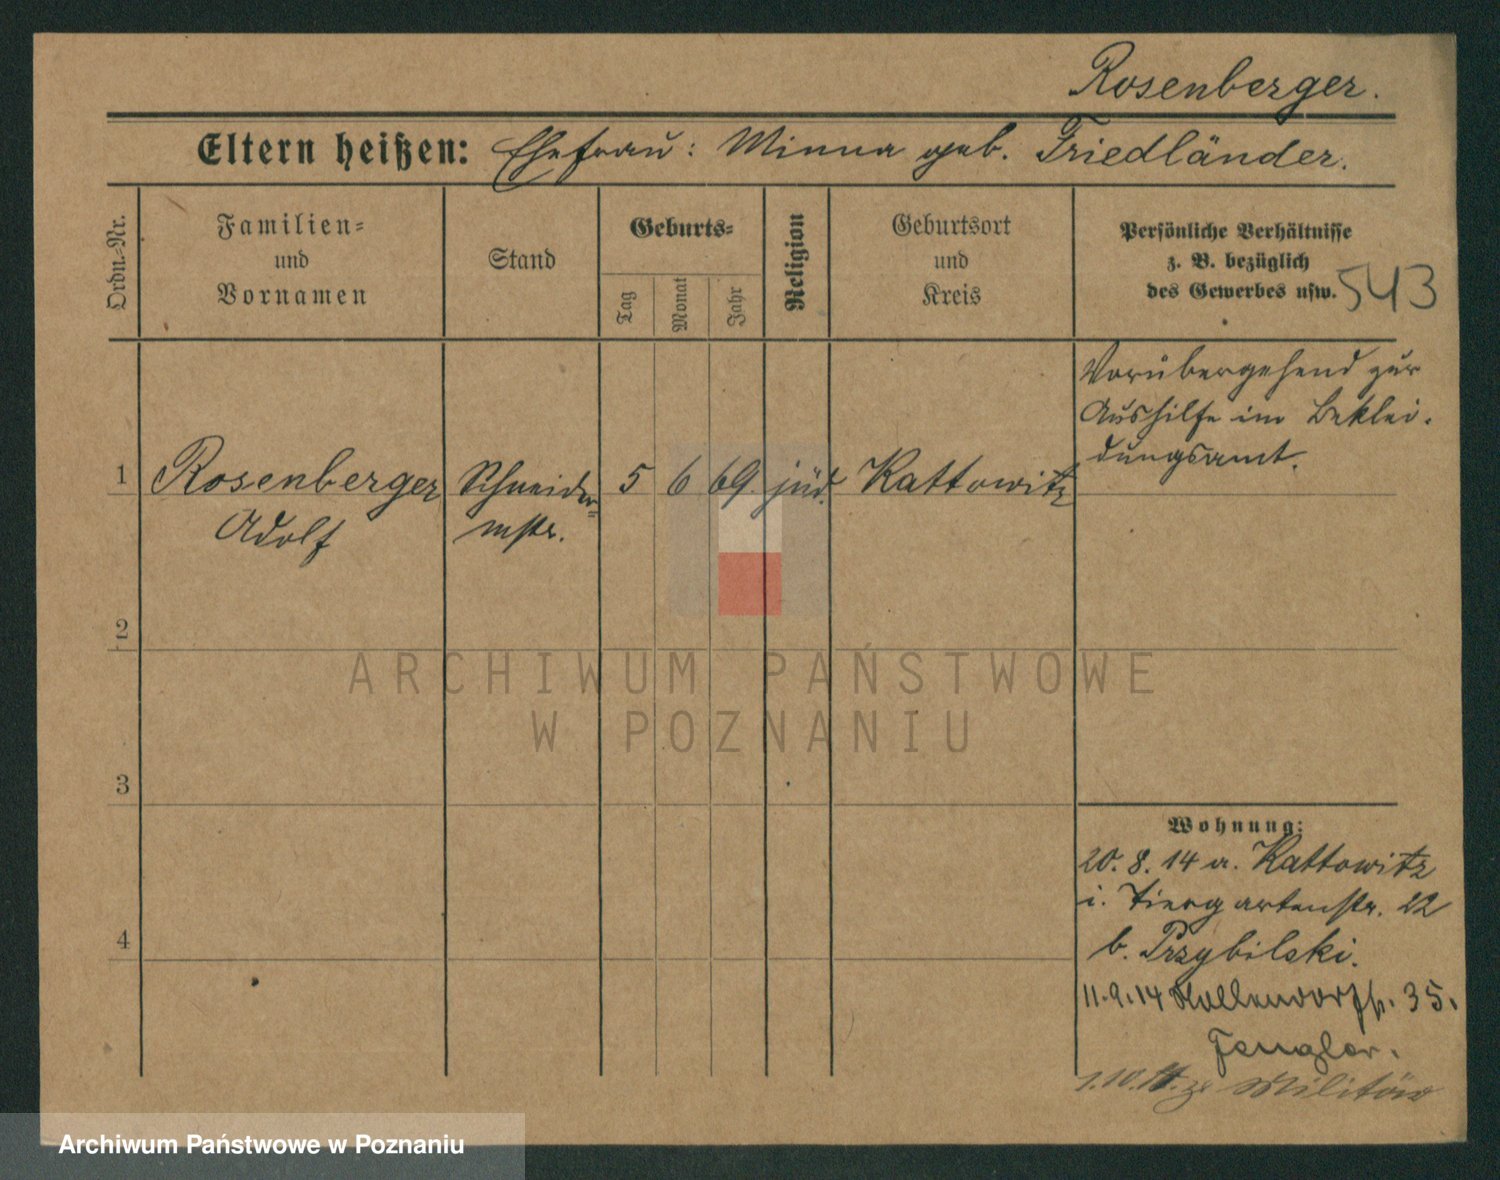 Rosenberger.
Eltern heißen: Ehefrau: Minna geb. Friedländer.
Ordn.-Nr.
Familien-
und
Vornamen
Stand
Geburts-
Tag
Monat
Jahr
Religion
Geburtsort
und
Kreis
Persönliche Verhältnisse
z. B. bezüglich
des Gewerbes usw. 543
Vorübergehend zur
Aushilfe im Beklei-
dungsamt.
1 Rosenberger Schneider= 5 6 69. jüd. Kattowitz
Adolf mstr.
2
ARCHIWUM PAŃSTWOWE
W POZNANIU
3
Wohnung:
20. 8. 14 a. Kattowitz
i. Tiergartenstr. 22
b. Przybilski.
4
11.9.14 Nollendorfstr. 35.
Fengler.
1.10.14. zu Militär
Archiwum Państwowe w Poznaniu